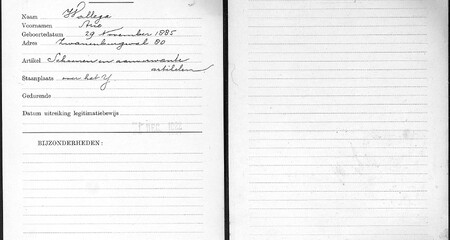 Naam Wallega
Voornamen Arie
Geboortedatum 29 November 1885
Adres Zwanenburgwal 80
Artikel Schoenen en aanverwante
artikelen
Staanplaats over het Y
Gedurende
Datum uitreiking legitimatiebewijs
BIJZONDERHEDEN: